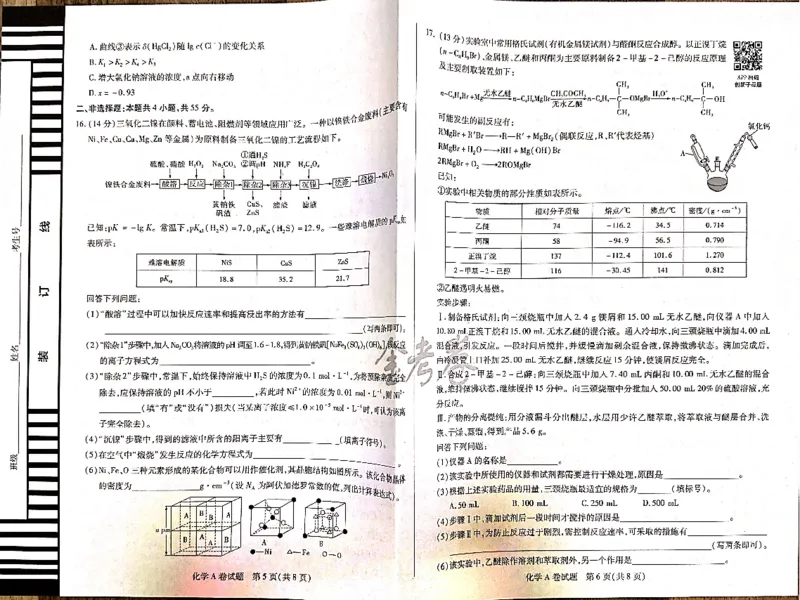 A. 曲线③表示 δ(HgCl₂)随 lg c(Cl⁻)的变化关系
B. K₁>K₂>K₄>K₃
C. 增大氯化钠溶液的浓度,a 点向右移动
D. x=-0.93
二、非选择题:本题共 4 小题,共 55 分。
16. (14 分)三氧化二镍在颜料、蓄电池、阻燃剂等领域应用广泛。一种以镍铁合金废料(主要含有
Ni、Fe、Cu、Ca、Mg、Zn 等金属)为原料制备三氧化二镍的工艺流程如下。
①通H₂S
硫酸、硝酸 H₂O₂ Na₂CO₃ ②调pH NH₄F H₂C₂O₄
镍铁合金废料 酸溶 反应 除杂1 除杂2 除杂3 沉镍 Ni₂O₃
黄钠铁矾渣 CuS、ZnS 滤渣 滤液
已知:pK=-lg K。常温下,pKa₁(H₂S)=7.0,pKa₂(H₂S)=12.9。一些难溶电解质的 pKsp 如
表所示:
难溶电解质 NiS CuS ZnS
pKsp 18.8 35.2 21.7
回答下列问题:
(1)“酸溶”过程中可以加快反应速率和提高浸出率的方法有
(写两条即可)。
(2)“除杂1”步骤中,加入 Na₂CO₃将溶液的 pH 调至 1.6~1.8,得到黄钠铁矾[Na₂Fe₆(SO₄)₄(OH)₁₂],该反应
的离子方程式为 。
(3)“除杂2”步骤中,常温下,始终保持溶液中 H₂S 的浓度为 0.1 mol·L⁻¹,为将预除杂离子完全
除去,应保持溶液的 pH 不小于 ,若此时 Ni²⁺的浓度为 0.01 mol·L⁻¹,则Ni²⁺
(填“有”或“没有”)损失(当某离子浓度≤1.0×10⁻⁵ mol·L⁻¹时,可认为该离
子完全除去)。
(4)“沉镍”步骤中,得到的滤液中所含的阳离子主要有 (填离子符号)。
(5)在空气中“煅烧”发生反应的化学方程式为 。
(6)Ni、Fe、O 三种元素形成的某化合物可以用作催化剂,其晶胞结构如图所示。该化合物晶体
的密度为 g·cm⁻³(设 Nₐ 为阿伏加德罗常数的值,列出计算表达式)。
A B
●—Ni △—Fe ○—O
化学 A 卷试题 第 5 页(共 8 页)
17. (13 分)实验室中常用格氏试剂(有机金属镁试剂)与酮反应合成醇。以正溴丁烷
(n-C₄H₉Br)、金属镁、乙醚和丙酮为主要原料制备 2-甲基-2-己醇的反应原理
及主要制取装置如下:
n-C₄H₉Br+Mg 无水乙醚 n-C₄H₉MgBr CH₃COCH₃ 无水乙醚 n-C₄H₉—C—OMgBr H₃O⁺ n-C₄H₉—C—OH
CH₃ CH₃
可能发生的副反应有:
RMgBr+R′Br→R—R′+MgBr₂(偶联反应,R、R′代表烃基)
RMgBr+H₂O→RH+Mg(OH)Br
2RMgBr+O₂→2ROMgBr
氯化钙
A
已知:
①实验中相关物质的部分性质如表所示。
物质 相对分子质量 熔点/℃ 沸点/℃ 密度/(g·cm⁻³)
乙醚 74 -116.2 34.5 0.714
丙酮 58 -94.9 56.5 0.790
正溴丁烷 137 -112.4 101.6 1.270
2-甲基-2-己醇 116 -30.45 141 0.812
②乙醚遇明火易燃。
实验步骤:
Ⅰ.制备格氏试剂:向三颈烧瓶中加入 2.4 g 镁屑和 15.00 mL 无水乙醚,向仪器 A 中加入
10.80 mL正溴丁烷和 15.00 mL 无水乙醚的混合液。通入冷却水,向三颈烧瓶中滴加 4.00 mL
混合液,引发反应。一段时间后搅拌,并缓慢滴加剩余混合液,保持微沸状态。滴加完成后,
向冷凝管上口补加 25.00 mL 无水乙醚,继续反应 15 分钟,使镁屑反应完全。
Ⅱ.合成2-甲基-2-己醇:向三颈烧瓶中加入 7.40 mL 丙酮和 10.00 mL 无水乙醚的混合
液,维持微沸状态,继续搅拌 15 分钟。向三颈烧瓶中分批加入 50.00 mL 20%的硫酸溶液,充
分反应。
Ⅲ.产物的分离提纯:用分液漏斗分出醚层,水层用少许乙醚萃取,将萃取液与醚层合并、洗
涤、干燥、蒸馏,得到产品 5.6 g。
回答下列问题:
(1)仪器 A 的名称是 。
(2)该实验中所使用的仪器和试剂都需要进行干燥处理,原因是 。
(3)根据上述实验药品的用量,三颈烧瓶最适宜的规格为 (填标号)。
A. 50 mL B. 100 mL C. 250 mL D. 500 mL
(4)步骤Ⅰ中,滴加试剂后一段时间才搅拌的原因是 。
(5)步骤Ⅱ中,为防止反应过于剧烈,需控制反应速率,可采取的措施有
(写两条即可)。
(6)该实验中,乙醚除作溶剂和萃取剂外,另一个作用是 。
化学 A 卷试题 第 6 页(共 8 页)
金考卷
考生号
姓名
班级
线
订
装